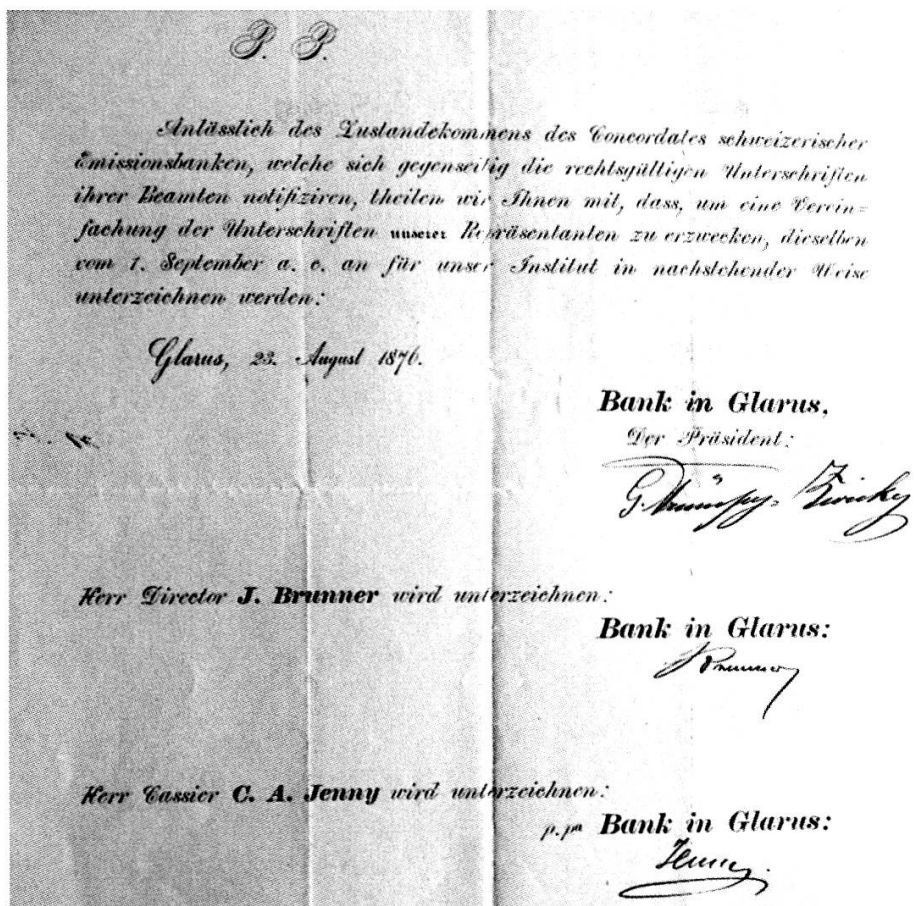 P. P.
Anlässlich des Zustandekommens des Concordates schweizerischer
Emissionsbanken, welche sich gegenseitig die rechtsgültigen Unterschriften
ihrer Beamten notifiziren, theilen wir Ihnen mit, dass, um eine Verein-
fachung der Unterschriften unserer Repräsentanten zu erzwecken, dieselben
vom 1. September a. c. an für unser Institut in nachstehender Weise
unterzeichnen werden:
Glarus, 23. August 1876.
Bank in Glarus,
Der Präsident:
Herr Director J. Brunner wird unterzeichnen:
Bank in Glarus:
Brunner
Herr Cassier C. A. Jenny wird unterzeichnen:
p. pa Bank in Glarus:
Jenny